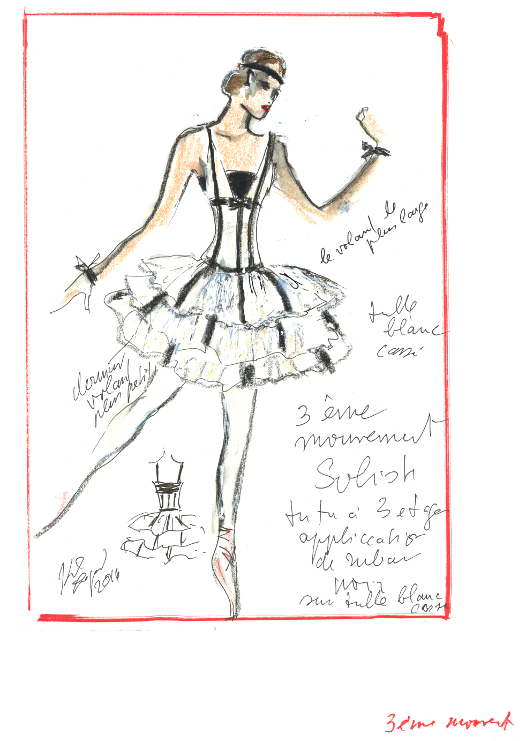 le volant le
plus large
tulle
blanc
cassé
dernier
volant
plus petit
3 ème
mouvement
Solist
tutu à 3 etage
appliccation
de ruban
noir
sur tulle blanc
cassé
2014
3ème mouvemt